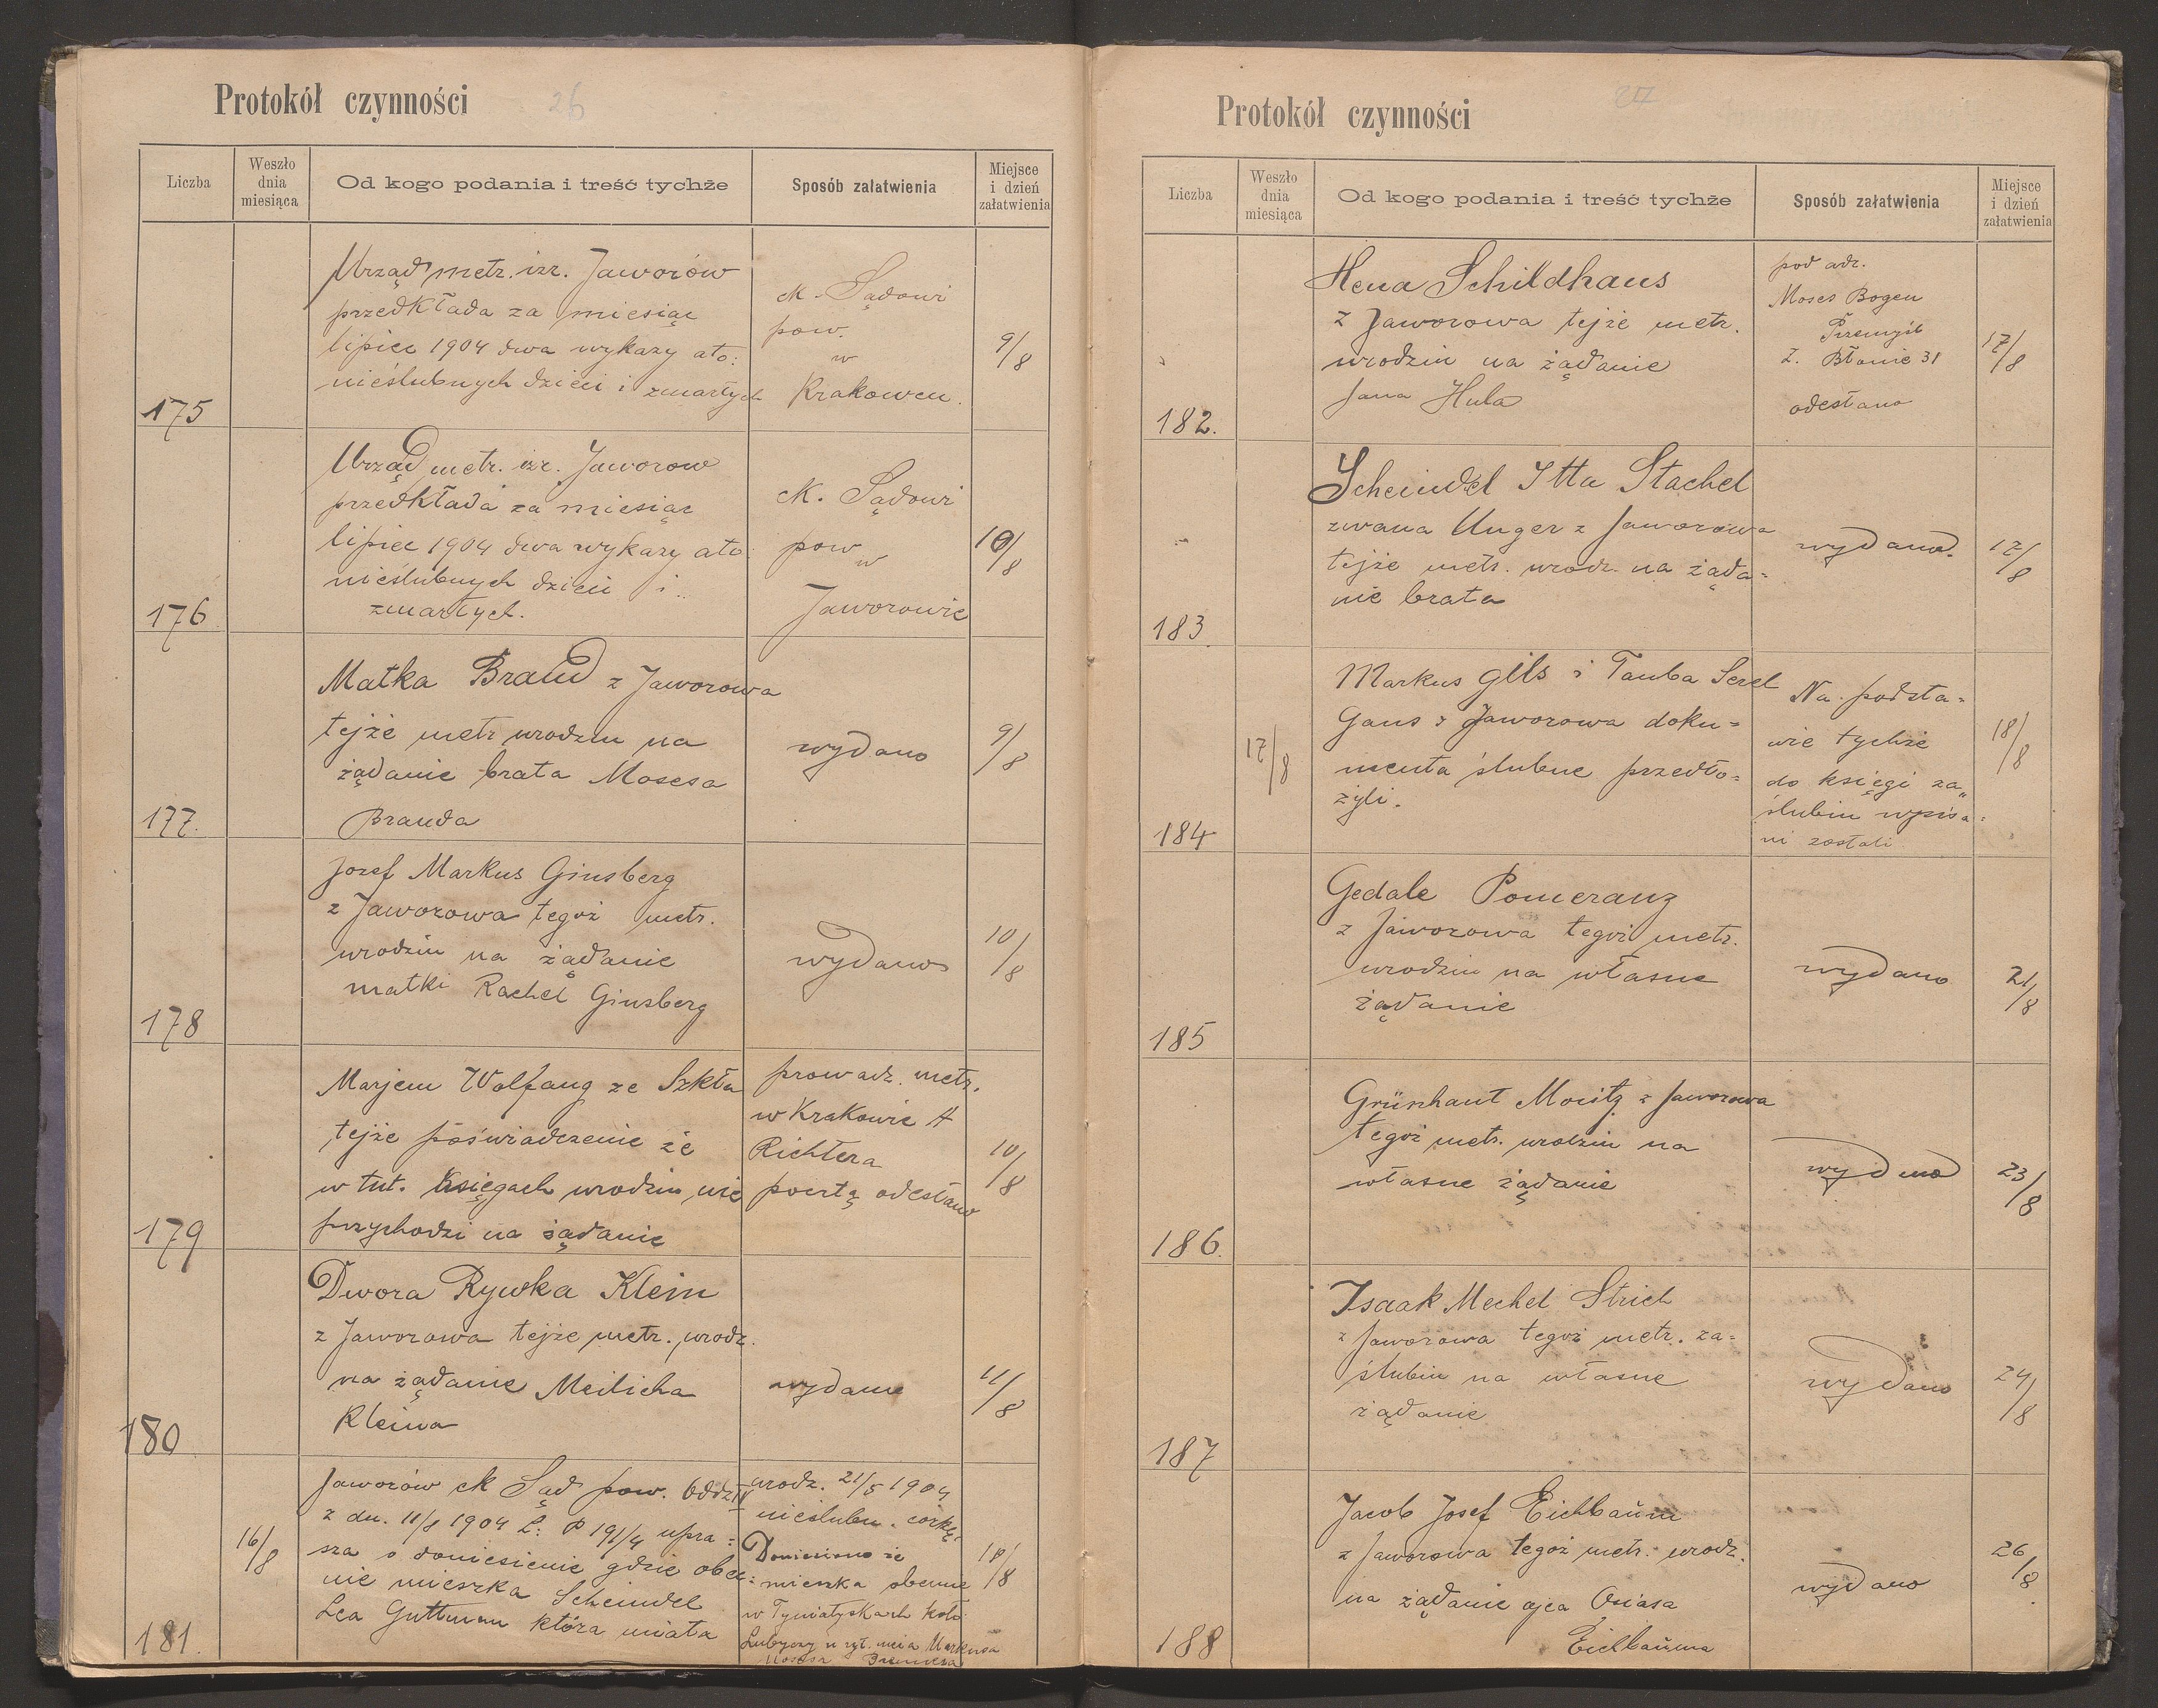 Protokół czynności 26
Liczba
Weszło dnia miesiąca
Od kogo podania i treść tychże
Sposób załatwienia
Miejsce i dzień załatwienia
175
Urząd metr. izr. Jaworów
przedkłada za miesiąc
lipiec 1904 dwa wykazy ato:
nieślubnych dzieci i zmarłych
ck. Sądowi
pow.
w
Krakowcu.
9/8
176
Urząd metr. izr. Jaworow
przedkłada za miesiąc
lipiec 1904 dwa wykazy ato:
nieślubnych dzieci i
zmarłych.
ck. Sądowi
pow
w
Jaworowie
10/8
177.
Matka Brand z Jaworowa
tejże metr urodzin na
żądanie brata Mosesa
Branda
wydano
9/8
178
Josef Markus Ginsberg
z Jaworowa tegoż metr.
urodzin na żądanie
matki Rachel Ginsberg
wydano
10/8
179
Marjem Wolfang ze Szkła
tejże poświadczenie że
w tut. księgach urodzin nie
przychodzi na żądanie
prowadz. metr.
w Krakowie A
Richtera
pocztą odesłano
10/8
180
Dwora Rywka Klein
z Jaworowa tejże metr. urodz.
na żądanie Meilicha
Kleina
wydano
11/8
181.
16/8
Jaworów ck Sąd pow. Oddz IV
z dn. 11/8 1904 L: P 191/4 upra=
sza o doniesienie gdzie obec=
nie mieszka Scheindel
Lea Guttman która miała
urodz. 21/5 1904
nieślubn. córkę
Doniesiono że
mieszka obecnie
w Tyniatyskach koło
Lubyczy u ryt. męża Markusa
Mosesa
18/8
Protokół czynności 27
Liczba
Weszło dnia miesiąca
Od kogo podania i treść tychże
Sposób załatwienia
Miejsce i dzień załatwienia
182.
Hena Schildhaus
z Jaworowa tejże metr.
urodzin na żądanie
Jana Hula
pod adr.
Moses Bogen
Przemyśl
Z. Błonie 31
odesłano
17/8
183
Scheindel Itta Stachel
zwana Unger z Jaworowa
tejże metr. urodz. na żąda=
nie brata
wydano.
17/8
184
17/8
Markus Gils i Tauba Serel
Gans z Jaworowa doku=
menta ślubne przedło=
żyli.
Na podsta=
wie tychże
do księgi za„
ślubin wpisa=
ni zostali
18/8
185
Gedale Pomeranz
z Jaworowa tegoż metr.
urodzin na własne
żądanie
wydano
21/8
186.
Grünhaut Moritz z Jaworowa
tegoż metr. urodzin na
własne żądanie
wydano
23/8
187
Isaak Mechel Strich
z Jaworowa tegoż metr. za=
ślubin na własne
żądanie
wydano
24/8
188
Jacob Josef Eichbaum
z Jaworowa tegoż metr. urodz.
na żądanie ojca Osiasa
Eichbauma
wydano
26/8